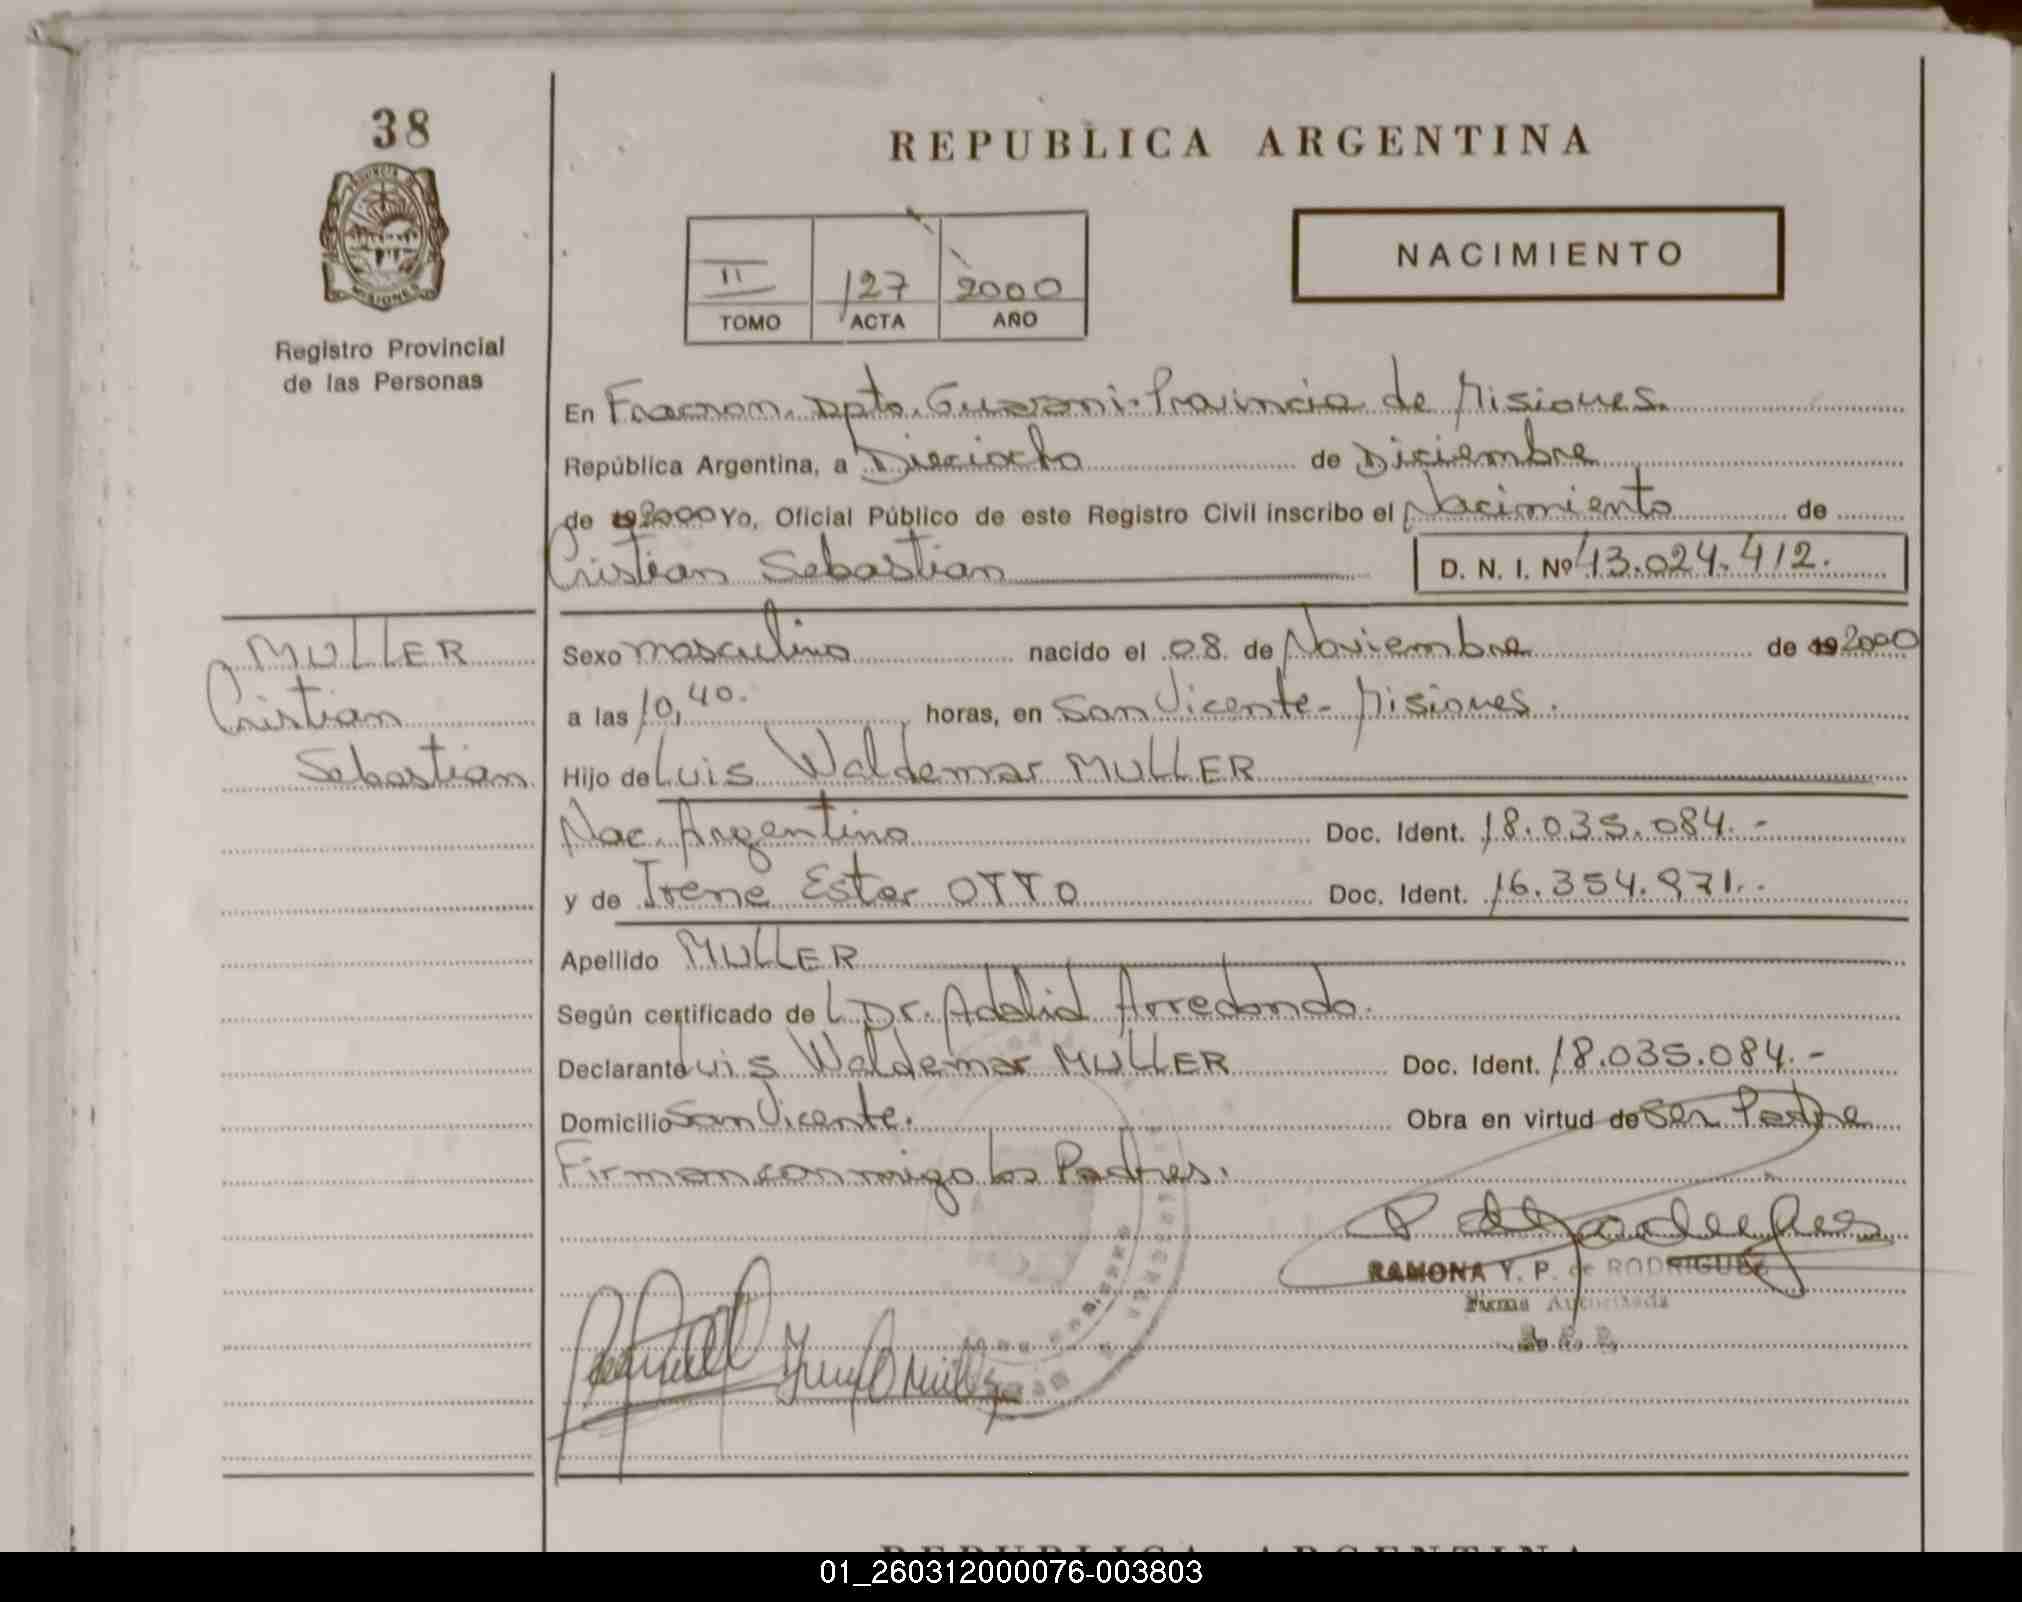 38
REPUBLICA ARGENTINA
NACIMIENTO
II 127 2000
TOMO ACTA AÑO
MISIONES
Registro Provincial
de las Personas
En Fracran, Dpto. Guarani-Provincia de Misiones.
República Argentina, a Dieciocho de Diciembre
de 192000 Yo, Oficial Público de este Registro Civil inscribo el Nacimiento de
Cristian Sebastian D. N. I. Nº 43.024.412.
MULLER
Cristian
Sebastian
Sexo masculino nacido el 08 de Noviembre de 19 2000
a las 10,40. horas, en San Vicente- Misiones.
Hijo de Luis Waldemar MULLER
Nac. Argentino Doc. Ident. 18.035.084.-
y de Irene Ester OTTO Doc. Ident. 16.354.971.-
Apellido MULLER
Según certificado de L Dr. Adalid Arredondo.
Declarante Luis Waldemar MULLER Doc. Ident. 18.035.084.-
Domicilio San Vicente. Obra en virtud de Ser Padre
Firman conmigo los Padres.
RAMONA Y. P. de RODRIGUEZ
Firma Autorizada
REPUBLICA ARGENTINA
01_260312000076-003803